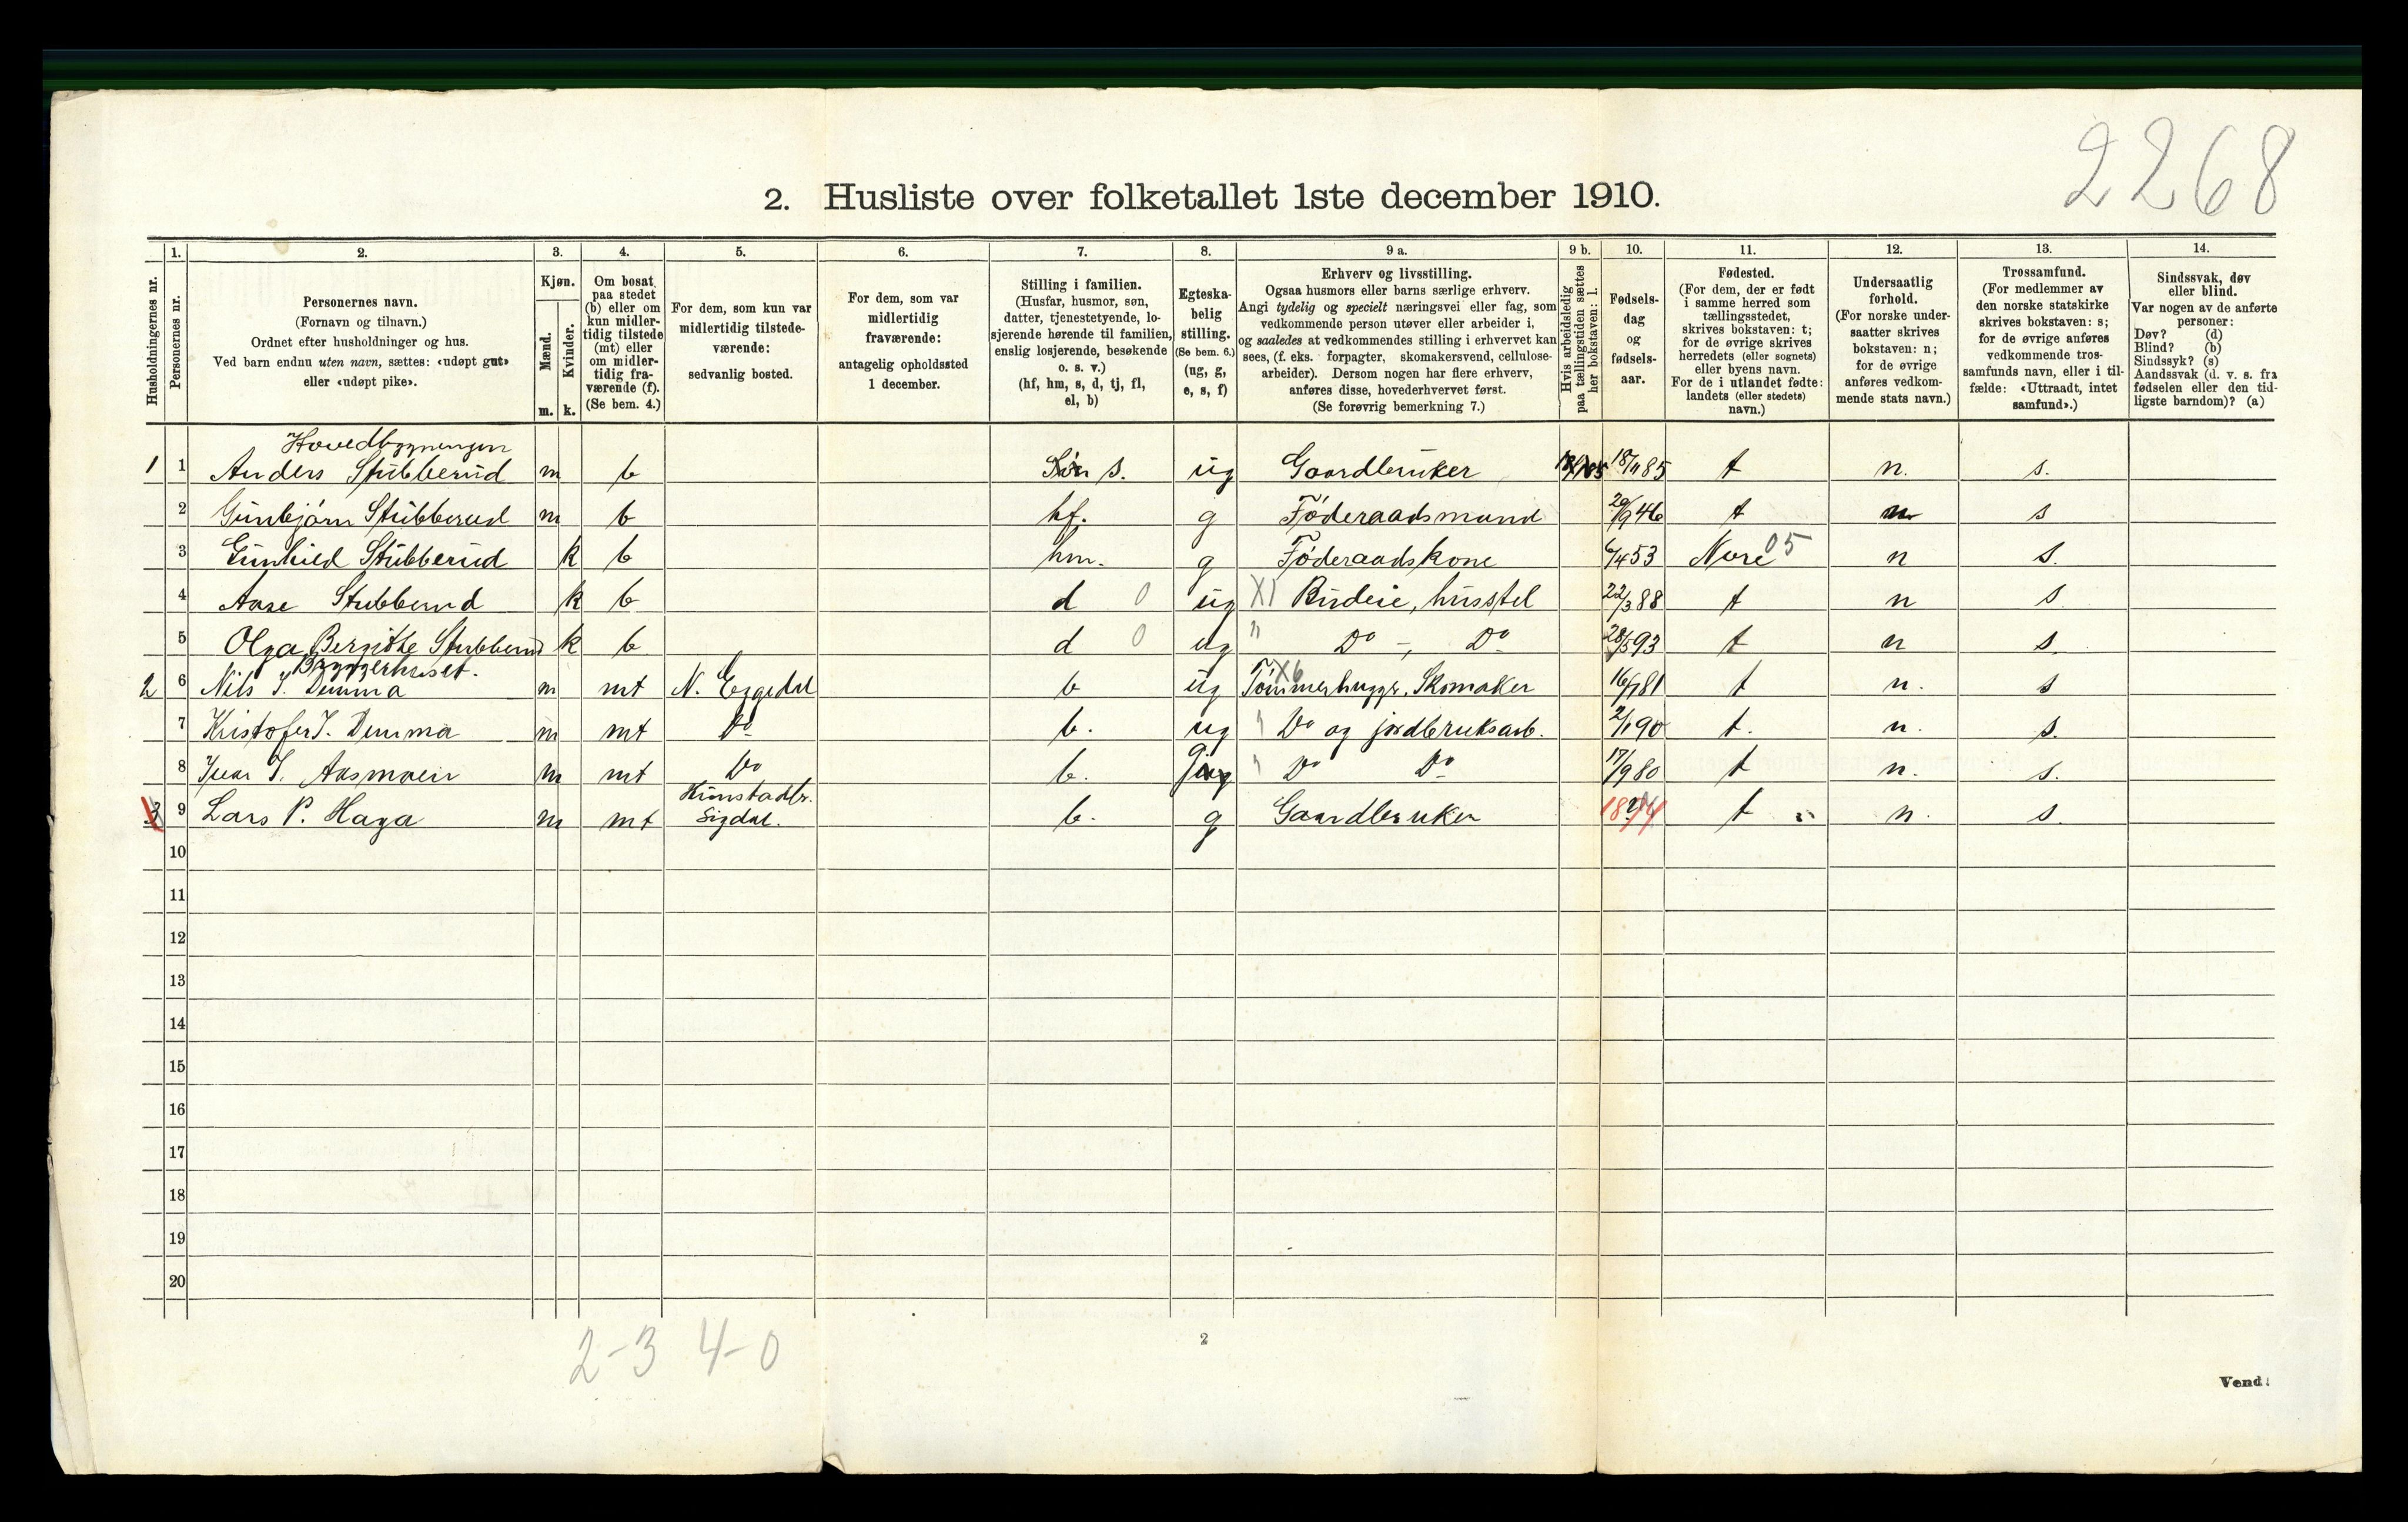 2268
2. Husliste over folketallet 1ste december 1910.
1. 2. 3. 4. 5. 6. 7. 8. 9 a. 9 b. 10. 11. 12. 13. 14.
Husholdningernes nr.
Personernes nr.
Personernes navn.
(Fornavn og tilnavn.)
Ordnet efter husholdninger og hus.
Ved barn endnu uten navn, sættes: «udøpt gut»
eller «udøpt pike».
Kjøn.
Mænd.
Kvinder.
m. k.
Om bosat
paa stedet
(b) eller om
kun midler-
tidig tilstede
(mt) eller
om midler-
tidig fra-
værende (f).
(Se bem. 4.)
For dem, som kun var
midlertidig tilstede-
værende:
sedvanlig bosted.
For dem, som var
midlertidig
fraværende:
antagelig opholdssted
1 december.
Stilling i familien.
(Husfar, husmor, søn,
datter, tjenestetyende, lo-
sjerende hørende til familien,
enslig losjerende, besøkende
o. s. v.)
(hf, hm, s, d, tj, fl,
el, b)
Egteska-
belig
stilling.
(Se bem. 6.)
(ug, g,
e, s, f)
Erhverv og livsstilling.
Ogsaa husmors eller barns særlige erhverv.
Angi tydelig og specielt næringsvei eller fag, som
vedkommende person utøver eller arbeider i,
og saaledes at vedkommendes stilling i erhvervet kan
sees, (f. eks. forpagter, skomakersvend, cellulose-
arbeider). Dersom nogen har flere erhverv,
anføres disse, hovederhvervet først.
(Se forøvrig bemerkning 7.)
Hvis arbeidsledig
paa tællingstiden sættes
her bokstaven: l.
Fødsels-
dag
og
fødsels-
aar.
Fødested.
(For dem, der er født
i samme herred som
tællingsstedet,
skrives bokstaven: t;
for de øvrige skrives
herredets (eller sognets)
eller byens navn.
For de i utlandet fødte:
landets (eller stedets)
navn.)
Undersaatlig
forhold.
(For norske under-
saatter skrives
bokstaven: n;
for de øvrige
anføres vedkom-
mende stats navn.)
Trossamfund.
(For medlemmer av
den norske statskirke
skrives bokstaven: s;
for de øvrige anføres
vedkommende tros-
samfunds navn, eller i til-
fælde: «Uttraadt, intet
samfund».)
Sindssvak, døv
eller blind.
Var nogen av de anførte
personer:
Døv? (d)
Blind? (b)
Sindssyk? (s)
Aandssvak (d. v. s. fra
fødselen eller den tid-
ligste barndom)? (a)
Hovedbygningen
1 1 Anders Stubberud m b Søn s. ug Gaardbruker 18/11 85 t n. s.
2 Gunbjørn Stubberud m b hf. g Føderaadsmand 20/9 46 t n s
3 Gunhild Stubberud k b hm. g Føderaadskone 6/4 53 Nore 05 n s.
4 Aase Stubberud k b d 0 ug X1 Budeie, husstel 22/3 88 t n s
5 Olga Bergitte Stubberud k b d 0 ug " Do -, Do 28/5 93 t n s.
Bryggerhuset.
2 6 Nils I. Dumma m mt N. Eggedal b ug X6 Tømmerhugger, Skomaker 16/7 81 t n. s
7 Kristofer I. Dumma m mt Do b. ug " Do og jordbruksarb. 2/1 90 t. n. s.
8 Ivar I. Aasmoen m mt Do b. g " Do Do 17/9 80 t n. s.
3 9 Lars P. Haga m mt Sigdal. b. g Gaardbruker 1874 t n. s.
10
11
12
13
14
15
16
17
18
19
20
2-3 4-0
2
Vend!